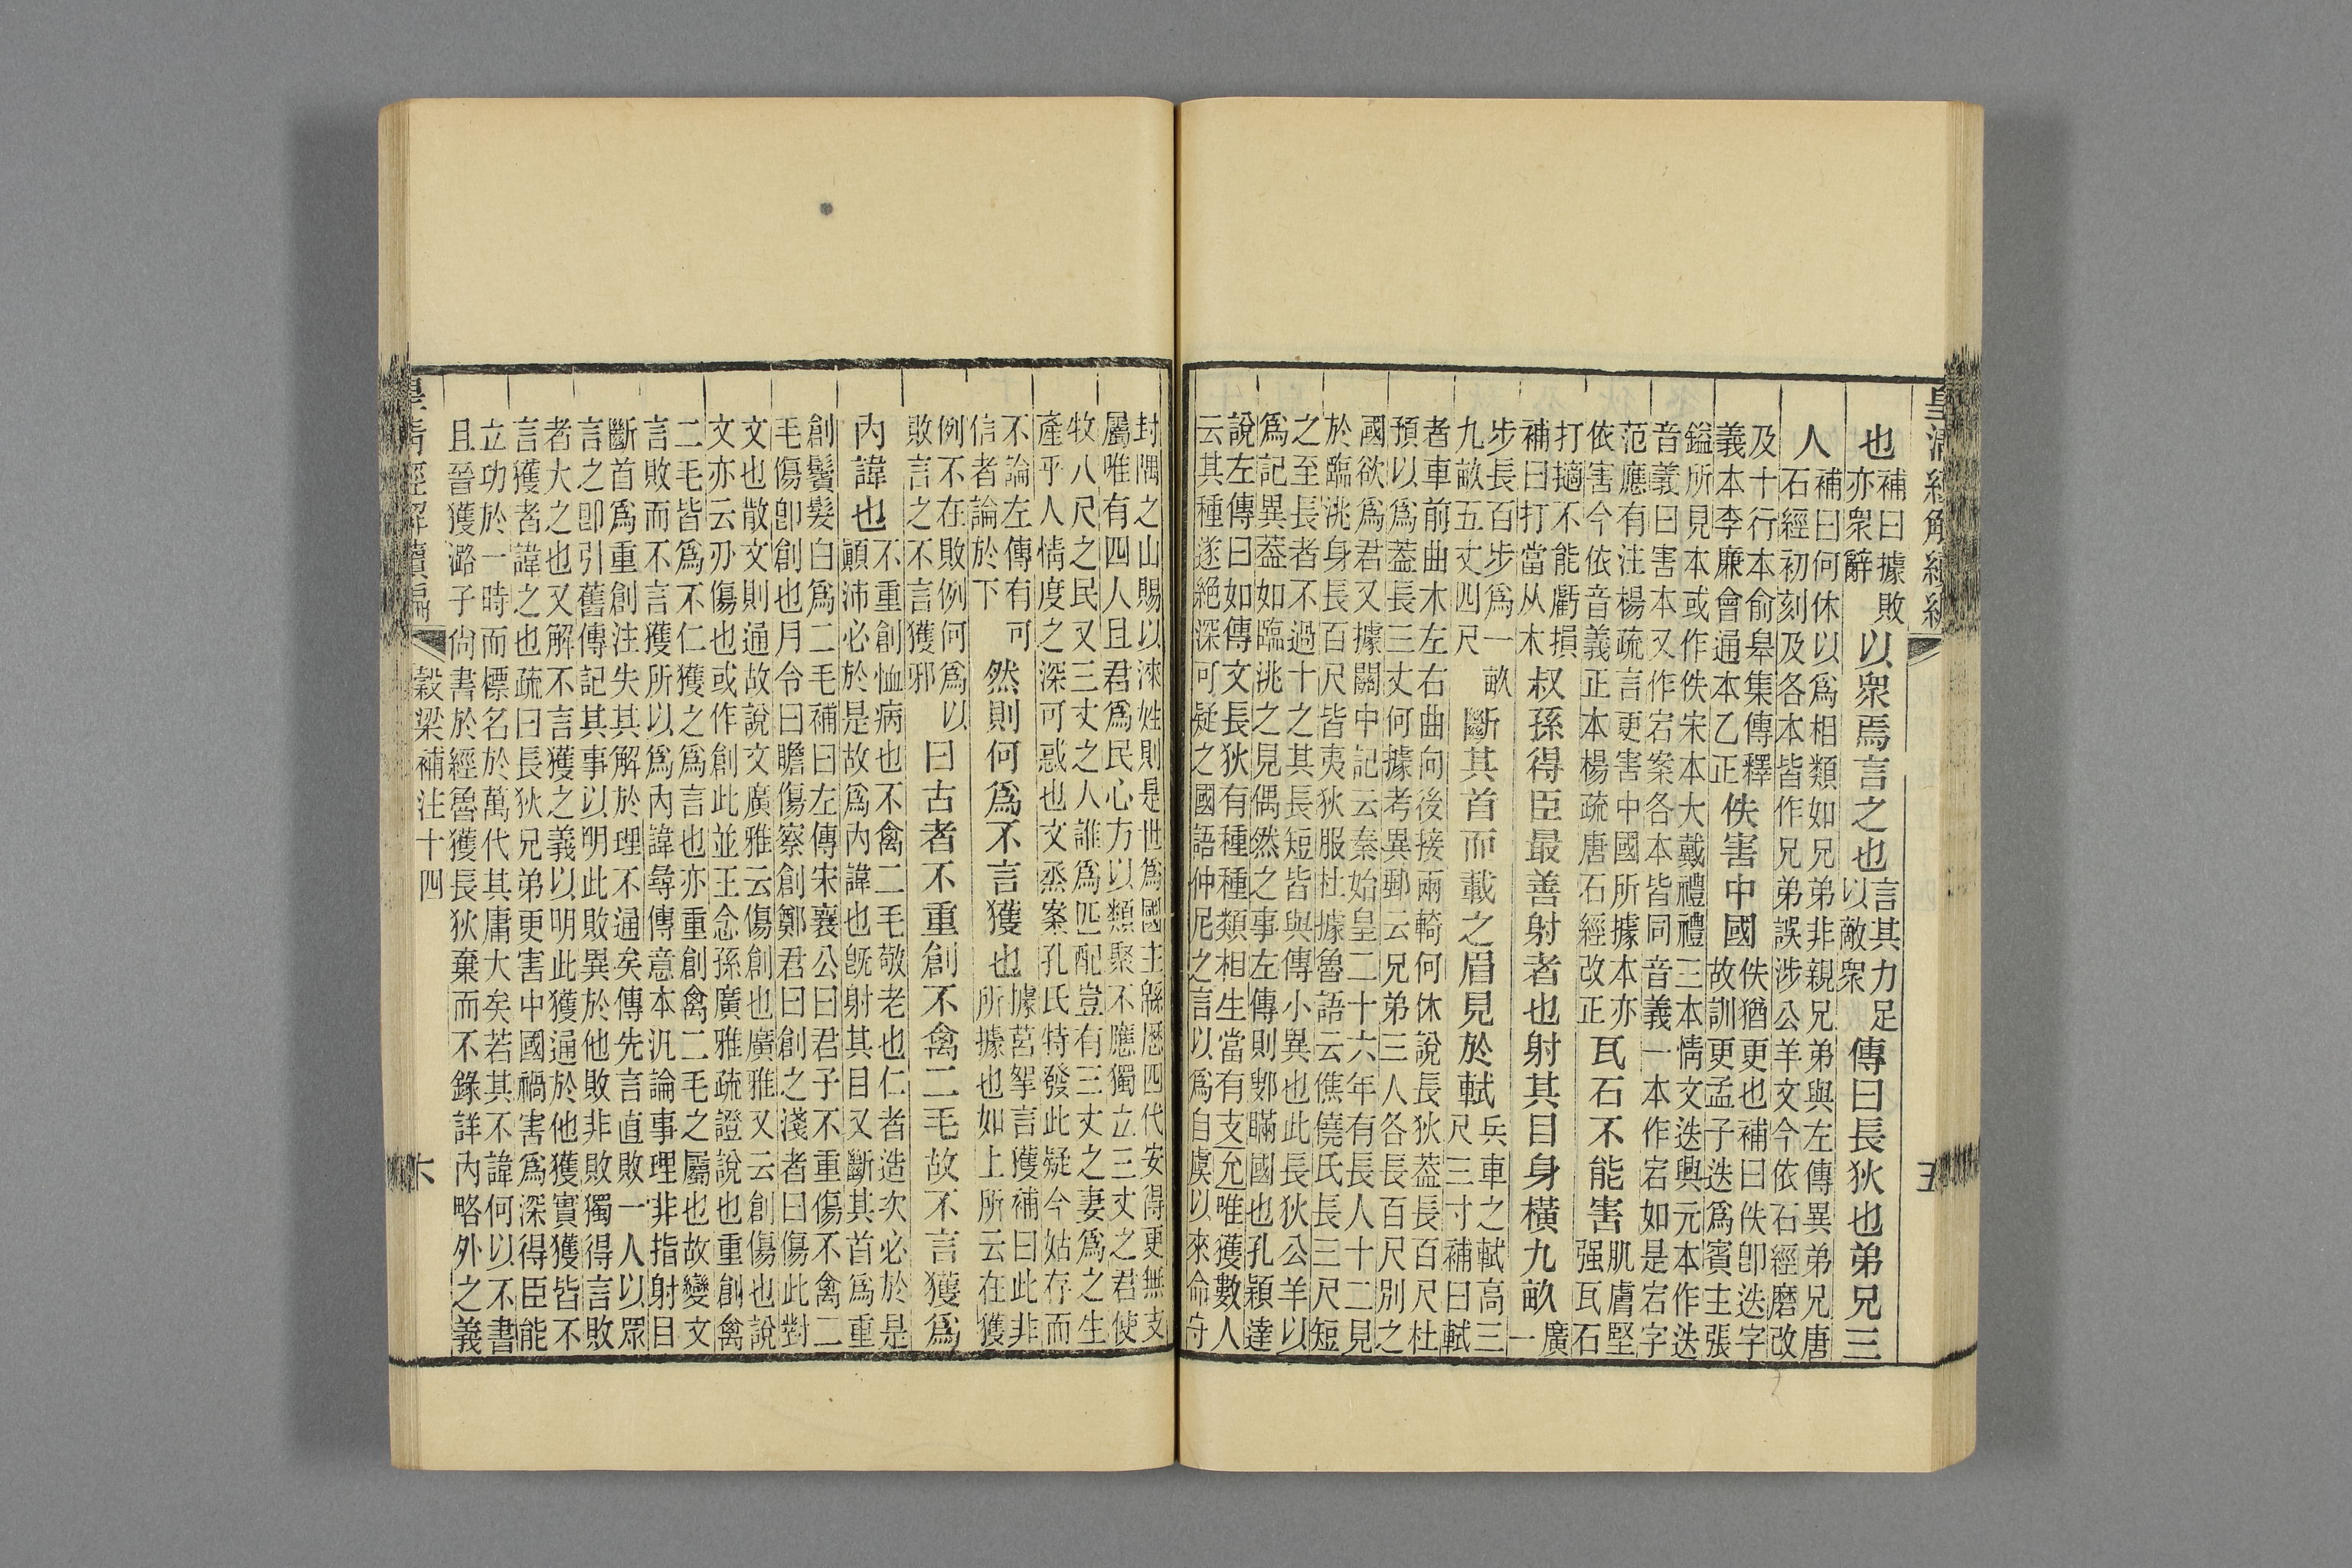 皇清經解續編
五
也補曰據敗
亦衆辭
以衆焉言之也
言其力足
以敵衆
傳曰長狄也弟兄三
人
補曰何休以爲相類如兄弟非親兄弟與左傳異弟兄唐
石經初刻及各本皆作兄弟誤涉公羊文今依石經磨改
及十行本俞皋集傳釋
義本李廉會通本乙正
佚害中國
佚猶更也補曰佚卽迭字
故訓更孟子迭爲賓主張
鎰所見本或作佚宋本大戴禮禮三本情文迭興元本作迭
音義曰害本又作宕案各本皆同音義一本作宕如是宕字
范應有注楊疏言更害中國所據本亦
依害今依音義正本楊疏唐石經改正
瓦石不能害
肌膚堅
强瓦石
打擿不能虧損
補曰打當从木
叔孫得臣最善射者也射其目身橫九畝
廣
一
步長百步爲一畝
九畝五丈四尺
斷其首而載之眉見於軾
兵車之軾高三
尺三寸補曰軾
者車前曲木左右曲向後接兩輢何休說長狄葢長百尺杜
預以爲葢長三丈何據考異郵云兄弟三人各長百尺別之
國欲爲君又據關中記云秦始皇二十六年有長人十二見
於臨洮身長百尺皆夷狄服杜據魯語云僬僥氏長三尺短
之至長者不過十之其長短皆與傳小異也此長狄公羊以
爲記異葢如臨洮之見偶然之事左傳則鄋瞞國也孔穎達
說左傳曰如傳文長狄有種種類相生當有支允唯獲數人
云其種遂絕深可疑之國語仲尼之言以爲自虞以來命守
封隅之山賜以漆姓則是世爲國主緜歷四代安得更無支
屬唯有四人且君爲民心方以類聚不應獨立三丈之君使
牧八尺之民又三丈之人誰爲匹配豈有三丈之妻爲之生
產乎人情度之深可惑也文烝案孔氏特發此疑今姑存而
不論左傳有可
信者論於下
然則何爲不言獲也
據莒挐言獲補曰此非
所據也如上所云在獲
例不在敗例何爲以
敗言之不言獲邪
曰古者不重創不禽二毛故不言獲爲
內諱也
不重創恤病也不禽二毛敬老也仁者造次必於是
顚沛必於是故爲內諱也旣射其目又斷其首爲重
創鬢髮白爲二毛補曰左傳宋襄公曰君子不重傷不禽二
毛傷卽創也月令曰瞻傷察創鄭君曰創之淺者曰傷此對
文也散文則通故說文廣雅云傷創也廣雅又云創傷也說
文亦云刅傷也或作創此並王念孫廣雅疏證說也重創禽
二毛皆爲不仁獲之爲言也亦重創禽二毛之屬也故變文
言敗而不言獲所以爲內諱尋傳意本汎論事理非指射目
斷首爲重創注失其解於理不通矣傳先言直敗一人以眾
言之卽引舊傳記其事以明此敗異於他敗非敗獨得言敗
者大之也又解不言獲之義以明此獲通於他獲實獲皆不
言獲者諱之也疏曰長狄兄弟更害中國禍害爲深得臣能
立功於一時而標名於萬代其庸大矣若其不諱何以不書
且晉獲潞子尙書於經魯獲長狄棄而不錄詳內略外之義
皇清經解續編
穀梁補注十四
六